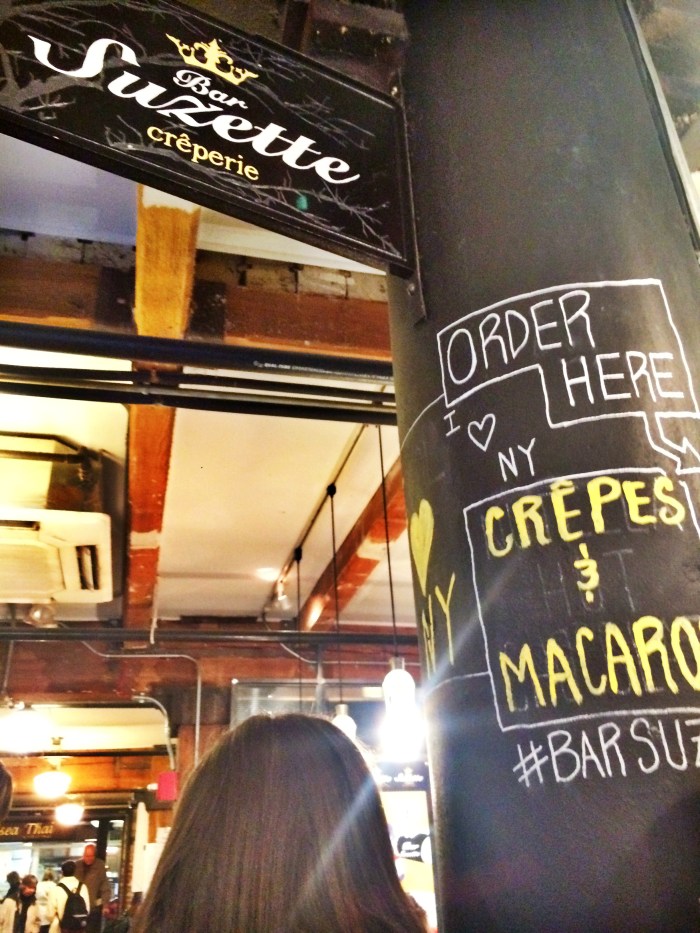 Bar
Suzette
crêperie
ORDER
HERE
I
♡
NY
CRÊPES
&
MACARO
#BARSUZ
NY
sea Thai